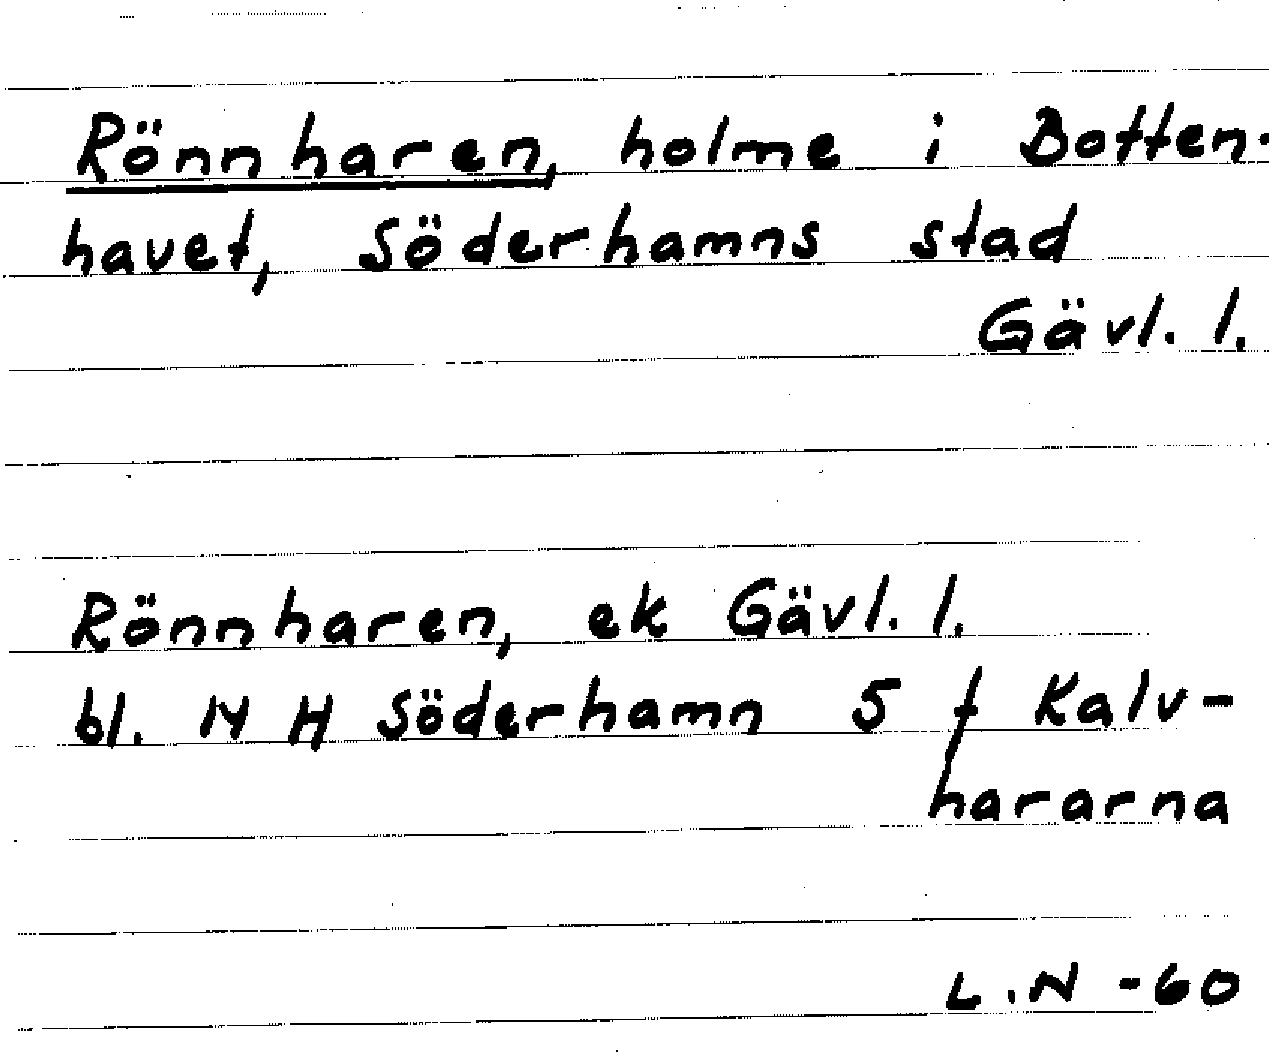 Rönnharen, holme i Botten-
havet, Söderhamns stad
Gävl. l.
Rönnharen, ek Gävl. l.
bl. 14 H Söderhamn 5 f Kalv-
hararna
L.N -60